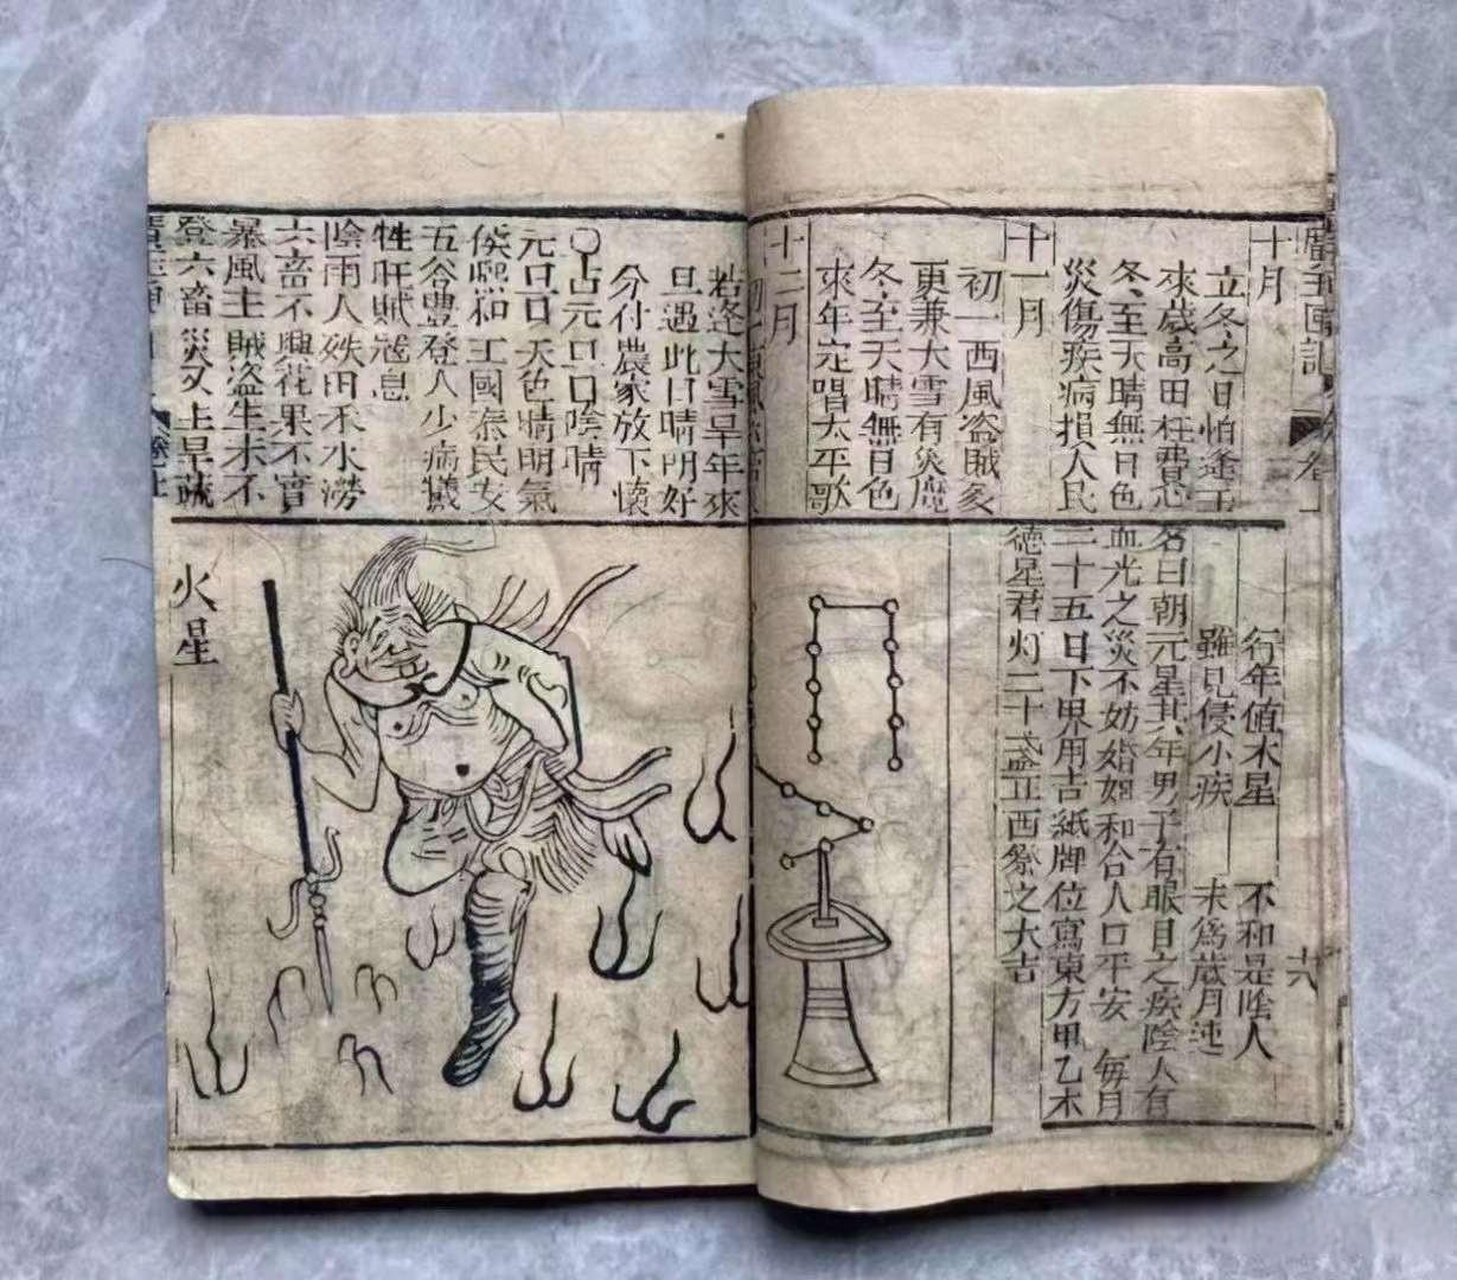 十月
立冬之日怕逢壬
來歲高田枉費心
冬至天晴無日色
災傷疾病損人民
十一月
初一西風盗賊多
更兼大雪有災魔
冬至天晴無日色
來年定唱太平歌
十二月
若逢大雪旱年來
旦遇此日晴明好
分付農家放下懷
占元旦日陰晴
元旦日天色晴明氣
侯熙和工國泰民安
五谷豊登人少病犧
牲旺賊冦息
陰雨人殃田禾水澇
六畜不興花果不實
暴風主賊盗生未不
登六畜災又主旱蔬
行年值木星 不和是陰人
雖見侵小疾 未為歲月迍
名曰朝元星其年男子有眼目之疾陰人有
血光之災不妨婚姻和合人口平安 每月
二十五日下界用吉紙牌位寫東方甲乙木
德星君灯二十盞正西祭之大吉
火星